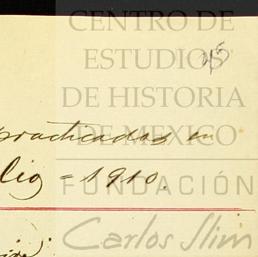 CENTRO DE
ESTUDIOS
DE HISTORIA
DE MEXICO
FUNDACIÓN
Carlos Slim
45
practicadas en
lio = 1910.